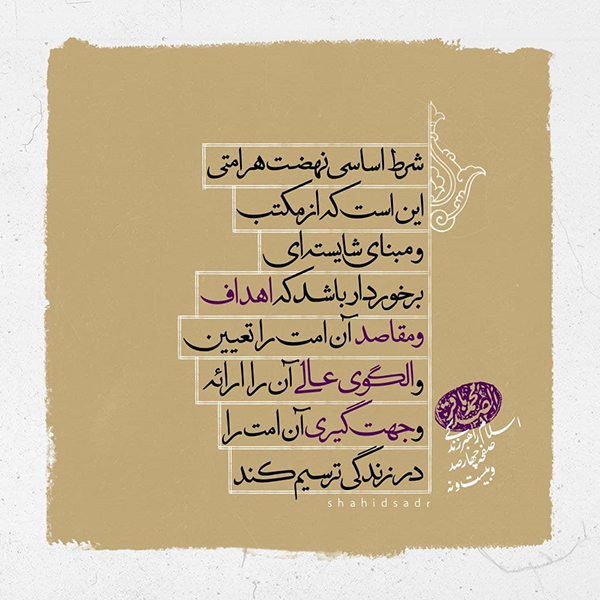 شرط اساسی نهضت هر امتی
این است که از مکتب
و مبنای شایسته‌ای
برخوردار باشد که اهداف
و مقاصد آن امت را تعیین
و الگوی عالی آن را ارائه
و جهت گیری آن امت را
در زندگی ترسیم کند
shahidsadr
اسلام راهبر زندگی
صفحه چهارصد
و بیست و نه